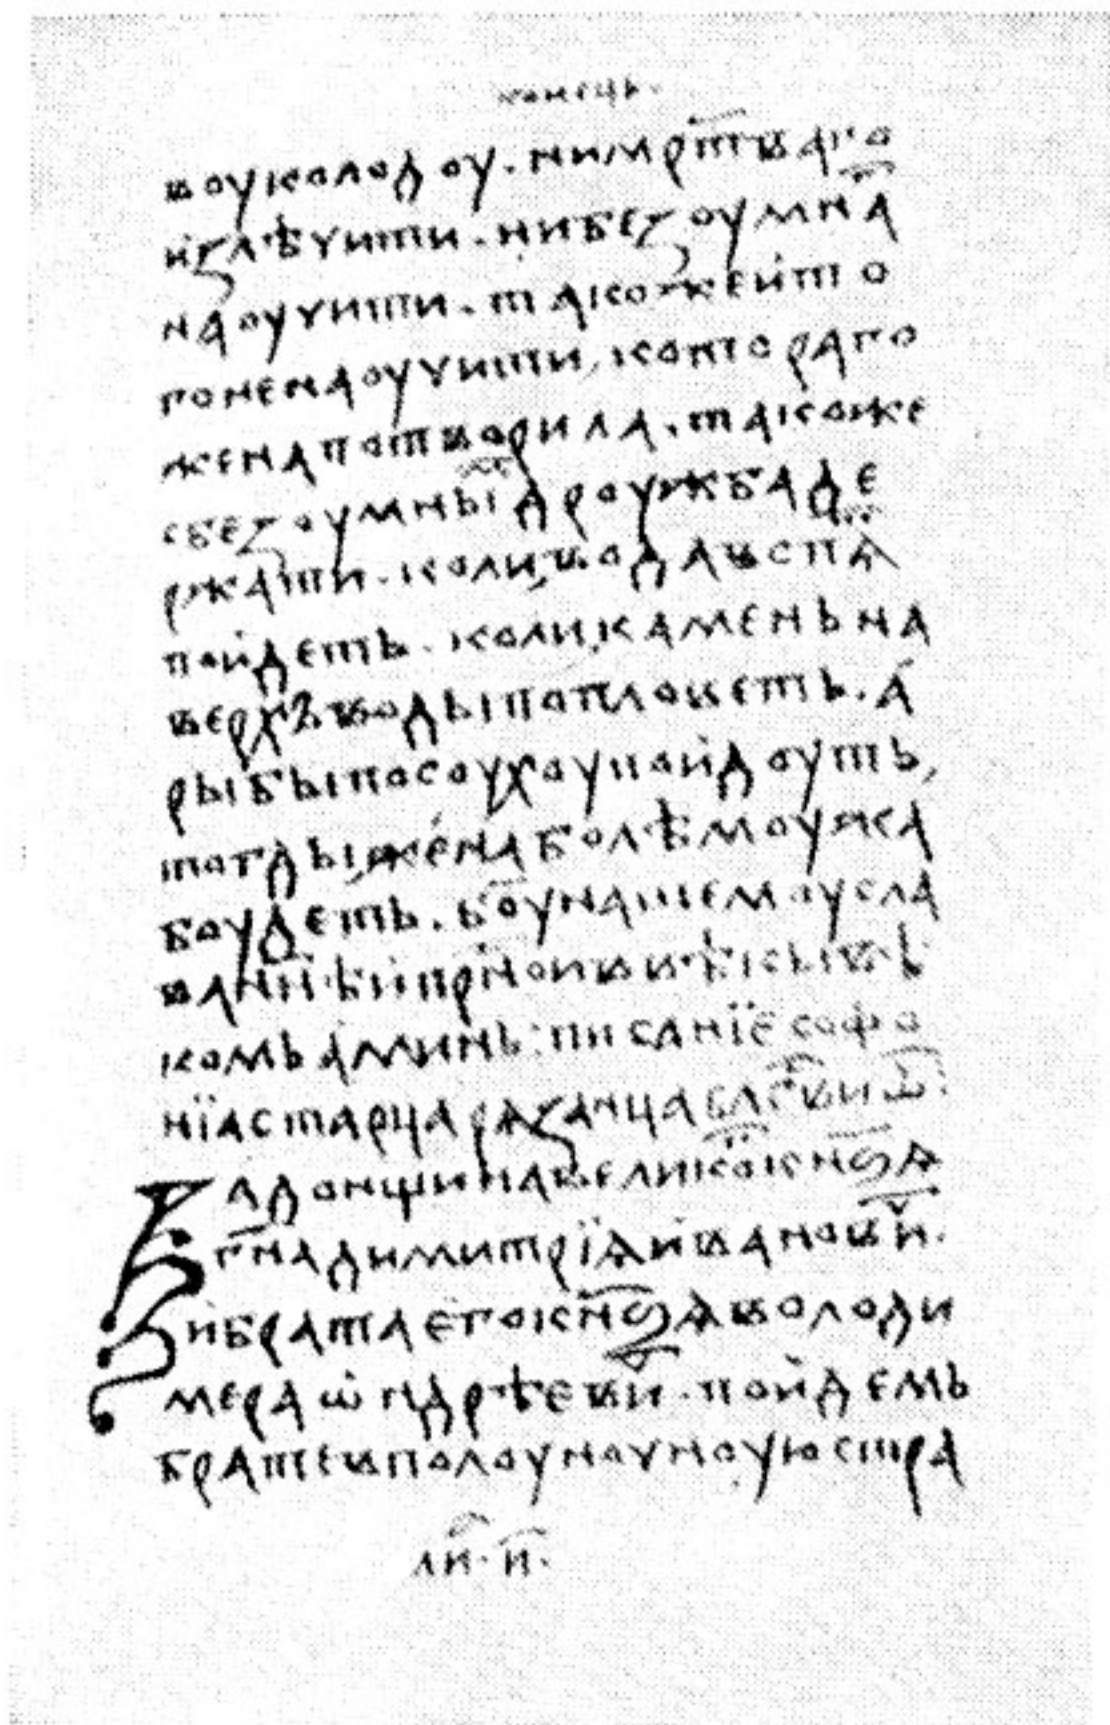 конець.
воуколодоу. нимрт҃ваго
излѣчити. нибезоумна
наоучити. такожеито
гоненаоучити, которага
женапотворила. такоже
сбезоумныⷨдроужбаде
ржати. коли, водавспѧⷮ
поидеть. коли, каменьна
верхъводыпопловеть. а
рыбыпосоухоупоидоуть,
тогды, женаболѣмоужа
боудеть. б҃оунашемоусла
ваннѣипр҃ноиввѣкывѣ
комьаминь: писаниїесофо
нїастарцарѧзанцабл҃свиѿ.
Задонщинавеликогⷪкн҃ѕѧ
гн҃адимитрїѧивановиⷱ.
ибратаегокн҃ѕѧволоди
мераѡндрѣевиⷱ. поидемь
братевполоуночноуюстра
лиⷭ. и҃.